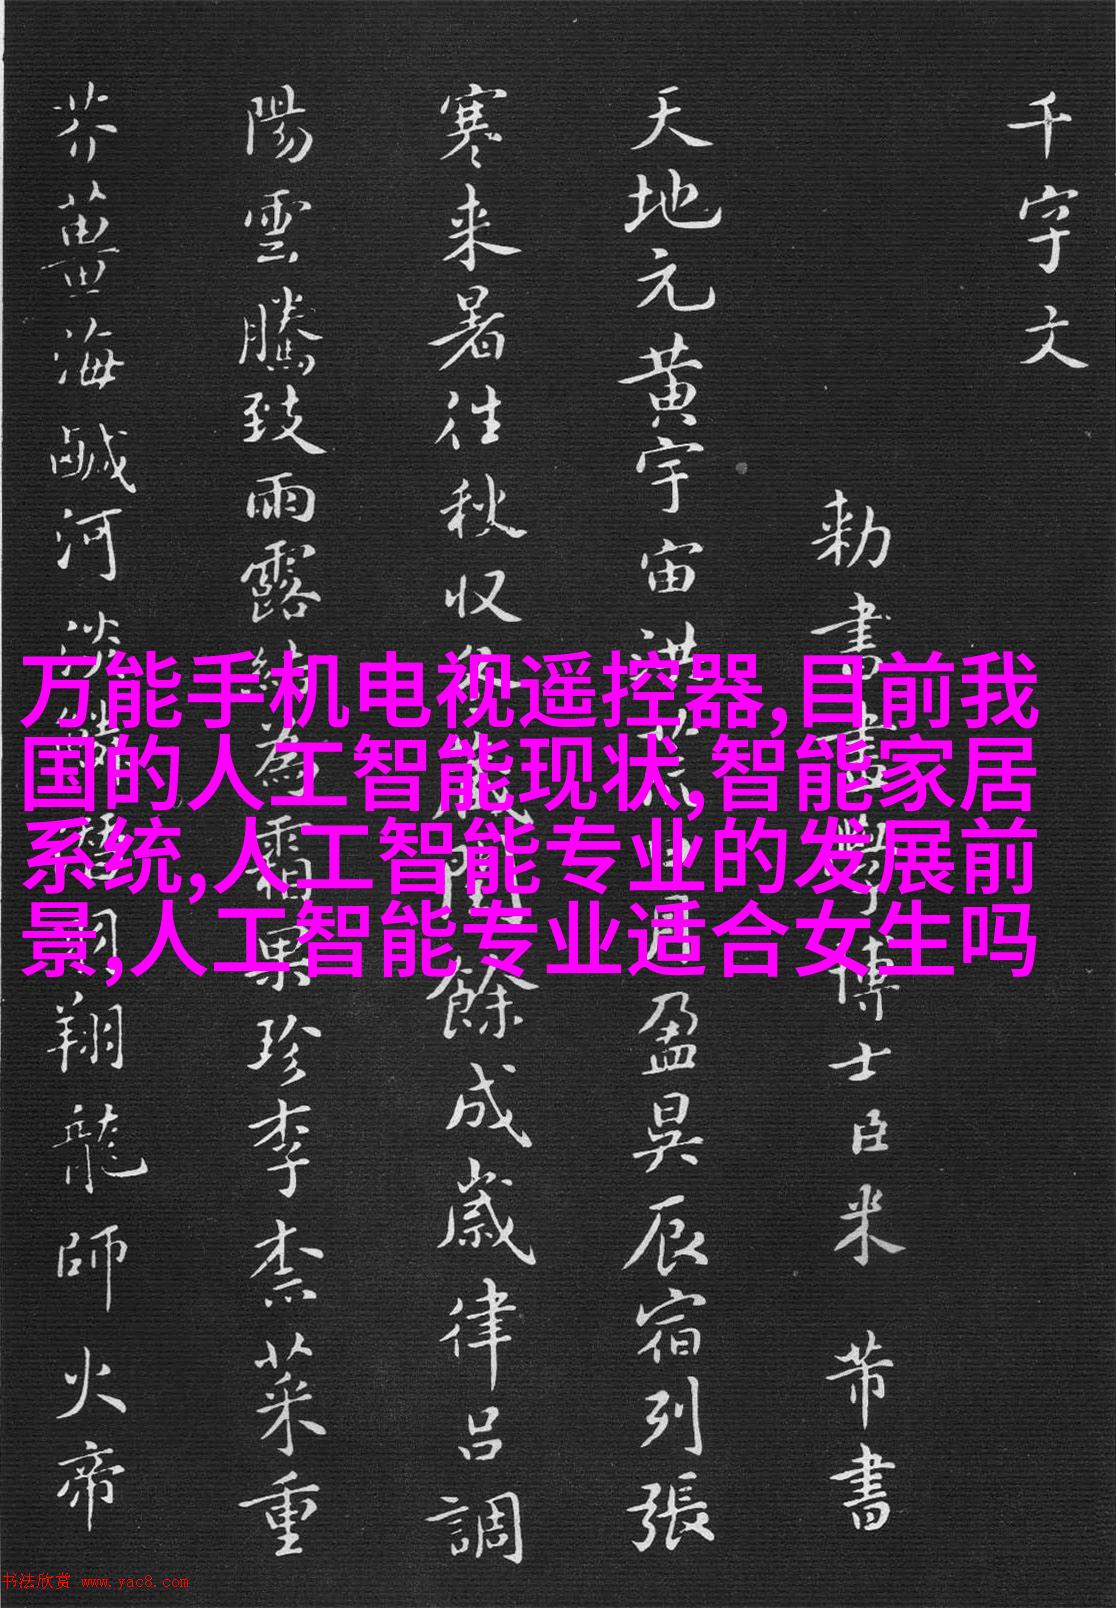 千字文
勅書畫學博士臣米芾書
天地元黄宇宙洪荒日月盈昃辰宿列張
寒来暑往秋収冬蔵閏餘成歳律吕調
陽雲騰致雨露結為霜果珍李柰菜重
芥薑海鹹河淡鱗潜羽翔龍師火帝
万能手机电视遥控器,目前我
国的人工智能现状,智能家居
系统,人工智能专业的发展前
景,人工智能专业适合女生吗
书法欣赏 www.yac8.com